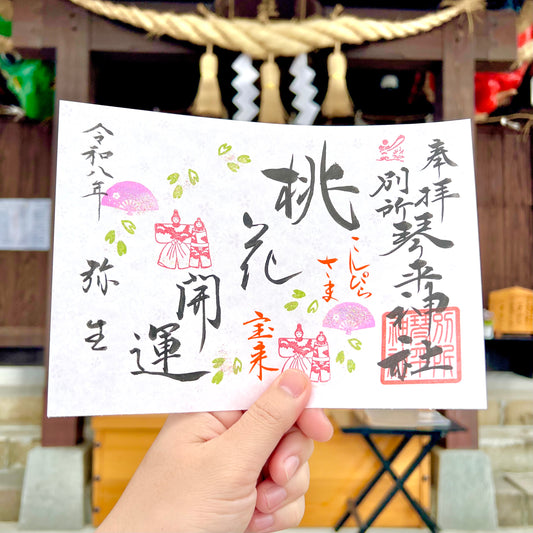 奉拝
別所琴平神社
こんぴら
さま
桃花
開運
宝来
令和八年
弥生